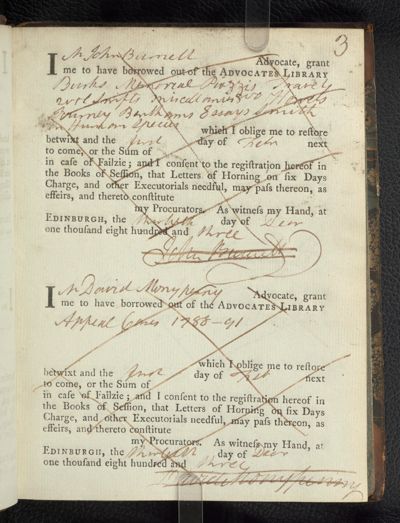 3
I Mr John Burnett Advocate, grant
me to have borrowed out of the ADVOCATES LIBRARY
Burks Memorial Travels
2 vol Swifts Miscellanies 2 vo
Journey Essays Smith
on Human Species which I oblige me to reſtore
betwixt and the first day of Febr next
to come, or the Sum of
in caſe of Failzie; and I conſent to the regiſtration hereof in
the Books of Seſſion, that Letters of Horning on ſix Days
Charge, and other Executorials needful, may paſs thereon, as
effeirs, and thereto conſtitute
my Procurators. As witneſs my Hand, at
EDINBURGH, the thirtieth day of Decr
one thouſand eight hundred and three
John Burnett
I Mr David Monypenny Advocate, grant
me to have borrowed out of the ADVOCATES LIBRARY
Appeal Cases 1788-91
which I oblige me to reſtore
betwixt and the first day of Feb next
to come, or the Sum of
in caſe of Failzie; and I conſent to the regiſtration hereof in
the Books of Seſſion, that Letters of Horning on ſix Days
Charge, and other Executorials needful, may paſs thereon, as
effeirs, and thereto conſtitute
my Procurators. As witneſs my Hand, at
EDINBURGH, the thirtieth day of Decr
one thouſand eight hundred and three
David Monypenny